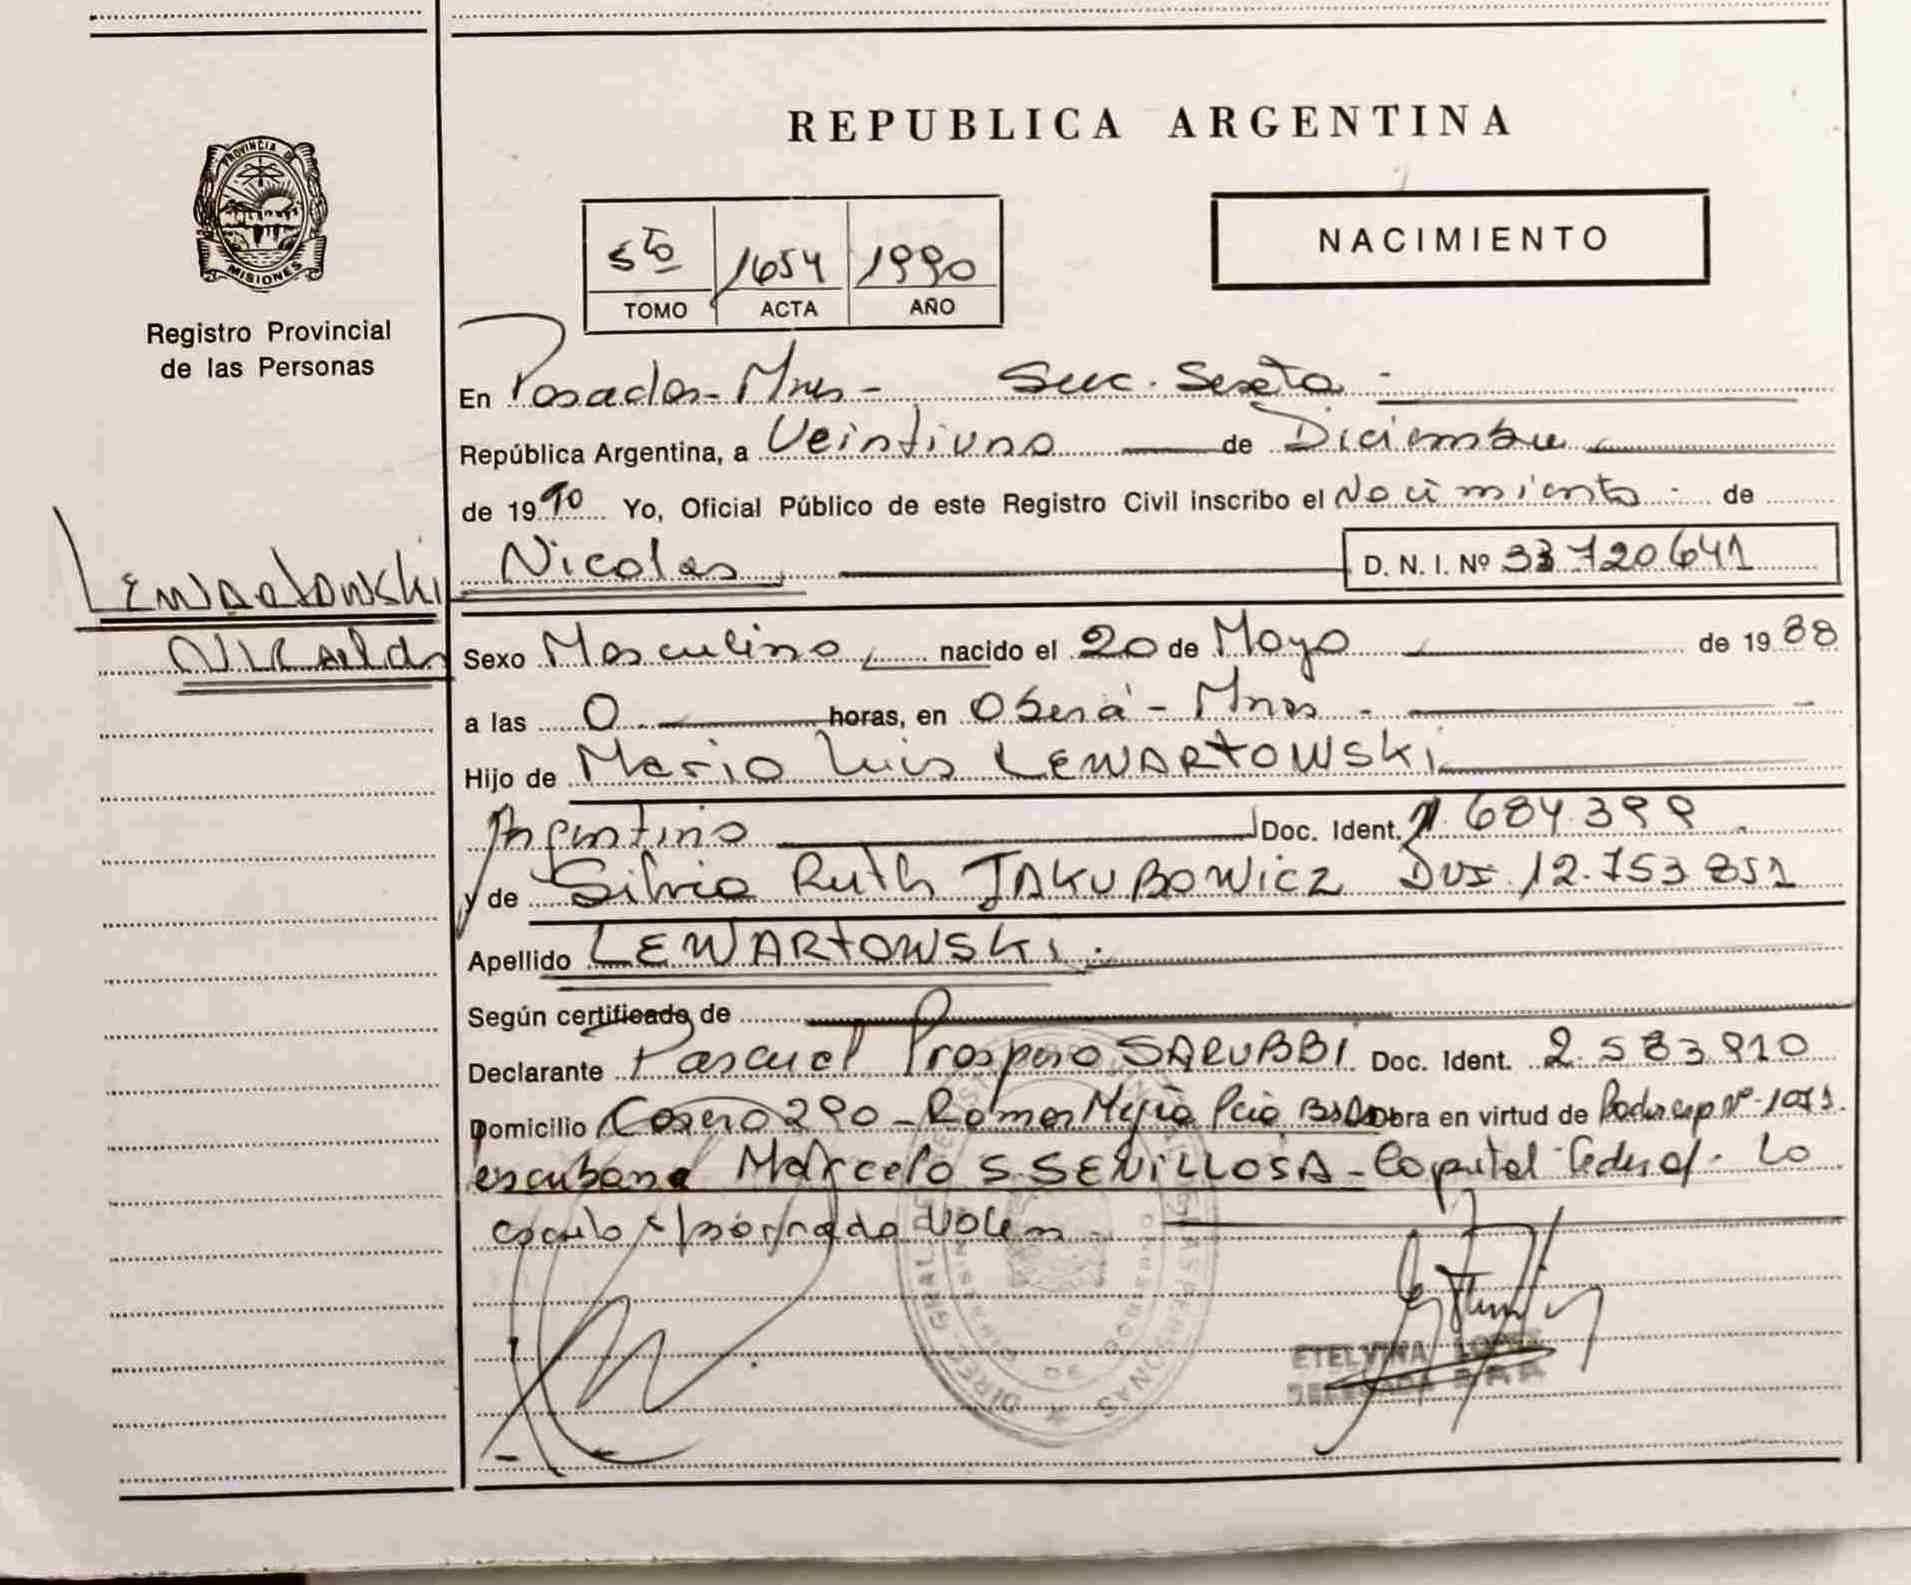 REPUBLICA ARGENTINA
PROVINCIA DE
MISIONES
Registro Provincial
de las Personas
5to 1654 1990
TOMO ACTA AÑO
NACIMIENTO
En Posadas - Mnes - Secc. Sexta -
República Argentina, a Veintiuno de Diciembre
de 1990 Yo, Oficial Público de este Registro Civil inscribo el Nacimiento de
Lewartowski
Nicolas D. N. I. Nº 33 720.641
Sexo Masculino, nacido el 20 de Mayo de 1988
a las 0 horas, en Oberá - Mnes -
Hijo de Mario Luis LEWARTOWSKI
Argentino Doc. Ident. 684.399
y de Silvia Ruth JAKUBOWICZ DNI 12.753 851
Apellido LEWARTOWSKI.
Según certificado de
Declarante Pascual Prospero SARUBBI Doc. Ident. 2.583.910
Domicilio Casero 290 - Ramos Mejia Pcia Bs As Obra en virtud de
escribano Marcelo S. SENILLOSA - Capital Federal - Lo
borrado Valen
ETELVINA LOPEZ